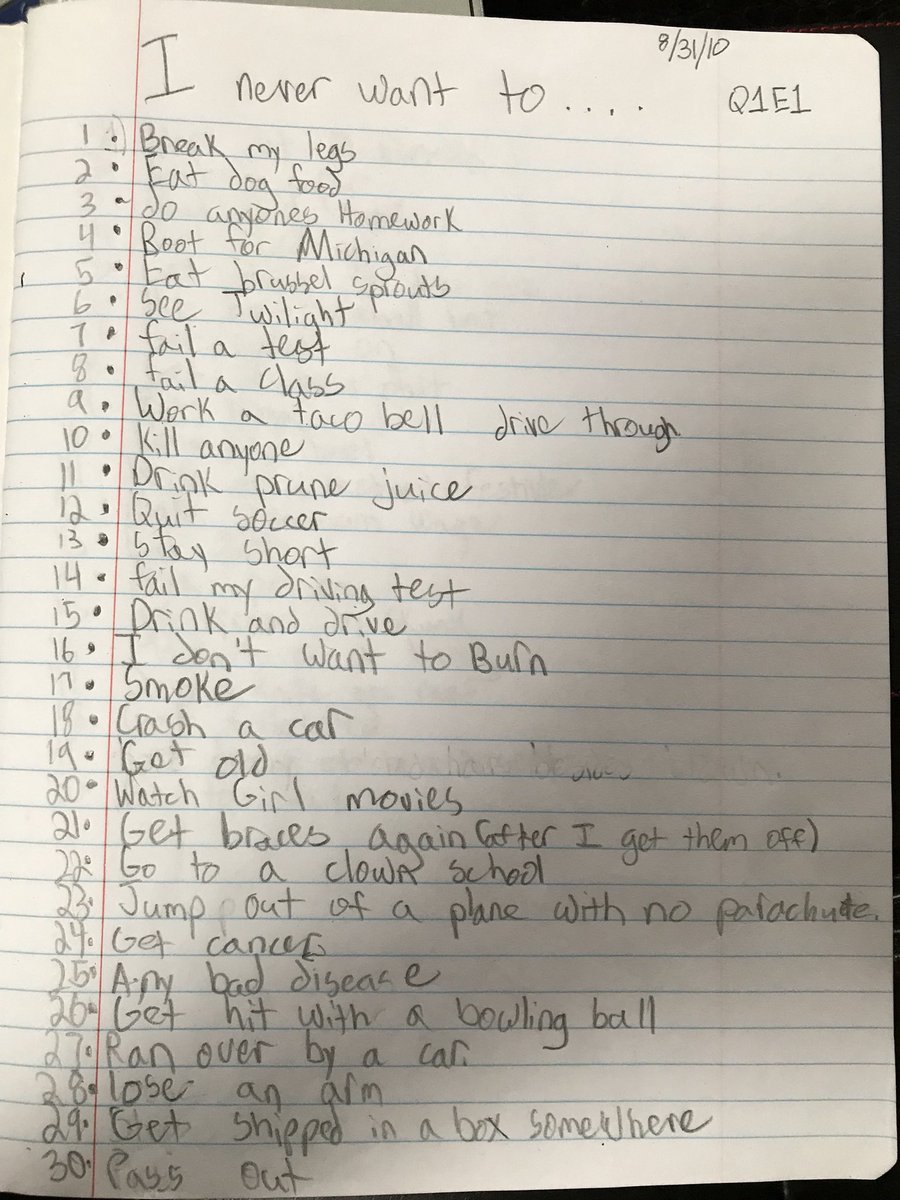 8/31/10
I never want to....
Q1E1
1. Break my legs
2. Eat dog food
3. do anyones Homework
4. Root for Michigan
5. Eat brussel sprouts
6. See Twilight
7. fail a test
8. fail a class
9. Work a taco bell drive through
10. kill anyone
11. Drink prune juice
12. Quit soccer
13. Stay short
14. fail my driving test
15. Drink and drive
16. I don't want to Burn
17. Smoke
18. Crash a car
19. Get old
20. Watch Girl movies
21. Get braces again (after I get them off)
22. Go to a clown school
23. Jump out of a plane with no parachute.
24. Get cancer
25. Any bad disease
26. Get hit with a bowling ball
27. Ran over by a car.
28. lose an arm
29. Get shipped in a box somewhere
30. Pass out